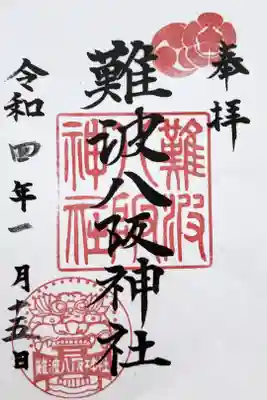 奉拝
難波八阪神社
令和四年一月十五日
難波八阪神社
難波八阪神社